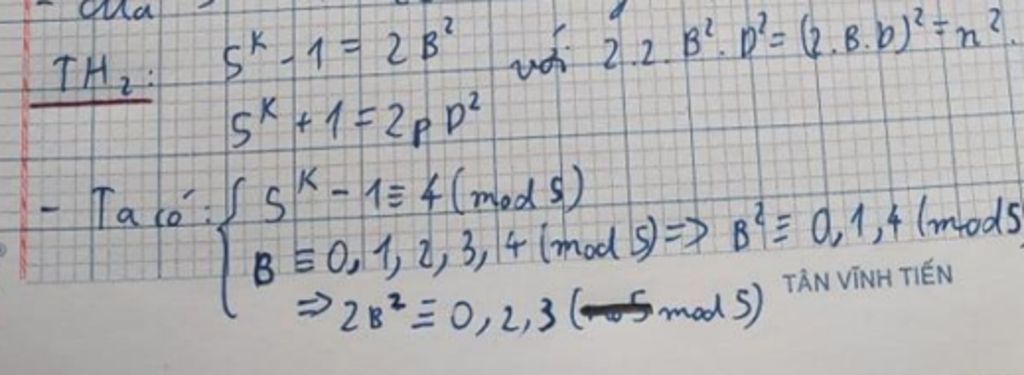 - của
TH₂: 5^K - 1 = 2B² với 2.2.B².D² = (2.B.D)² = n².
5^K + 1 = 2pD²
- Ta có: { 5^K - 1 ≡ 4 (mod 5)
B ≡ 0, 1, 2, 3, 4 (mod 5) => B² ≡ 0, 1, 4 (mod 5
=> 2B² ≡ 0, 2, 3 (mod 5)
TÂN VĨNH TIẾN